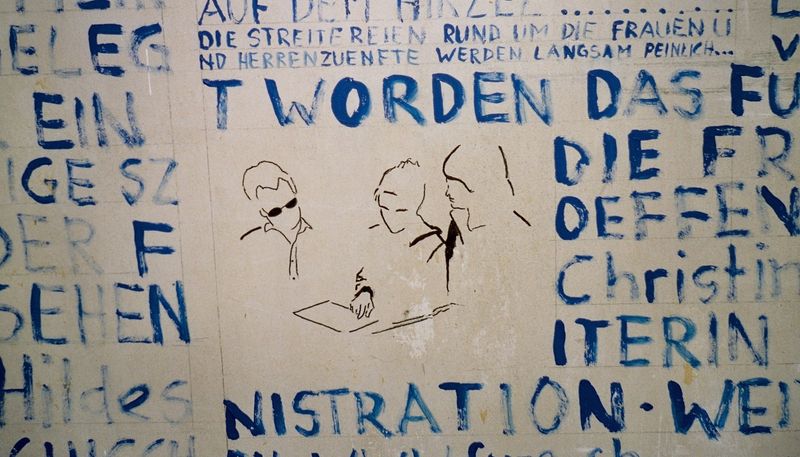 AUF DEM HIRZEL ............
ELEG DIE STREITEREIEN RUND UM DIE FRAUEN U
ND HERRENZUENFTE WERDEN LANGSAM PEINLICH...
EIN T WORDEN DAS FU
IGE SZ DIE FR
DER F OEFFEN
SEHEN Christin
ITERIN
Hildes NISTRATION · WEI